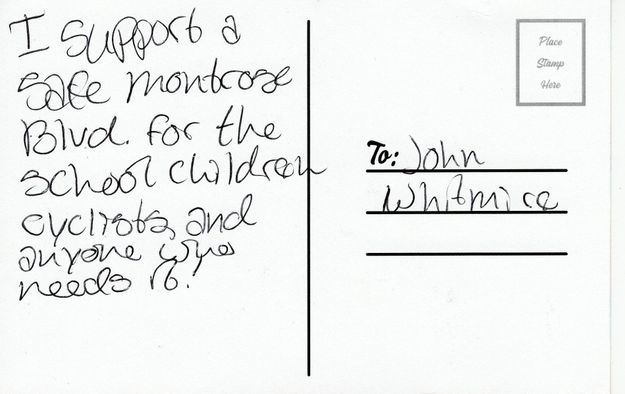 I support a
safe montrose
Blvd. for the
school children
cyclists, and
anyone who
needs it!
Place
Stamp
Here
To: John
Whitmire